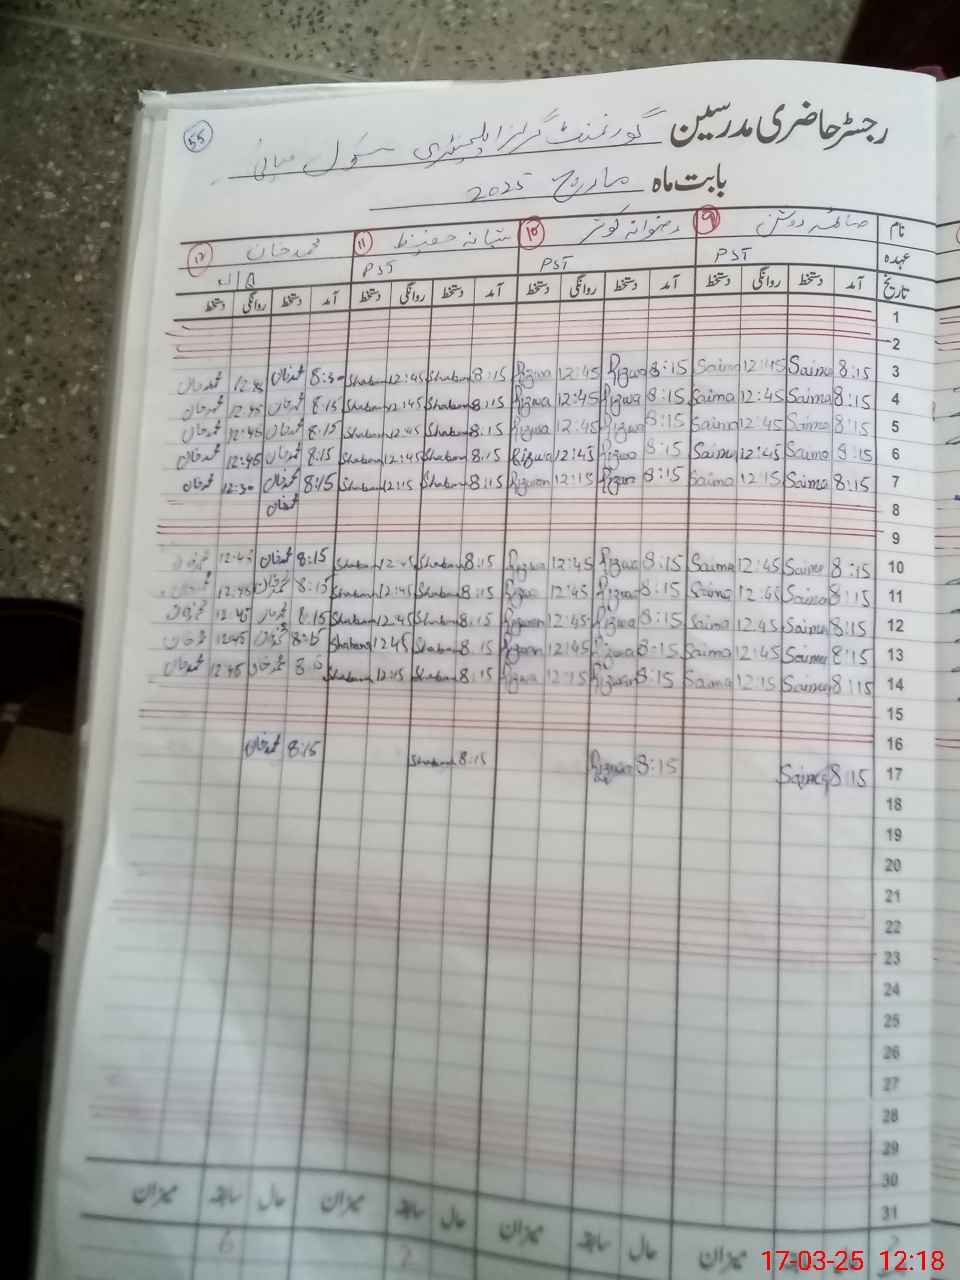 55
رجسٹر حاضری مدرسین گورنمنٹ گرلز ایلیمنٹری سکول میانی
بابت ماہ مارچ 2025
نام ⑨ صائمہ روشن ⑩ رضوانہ کوثر ⑪ شبانہ حفیظ ⑫ محمد خان
عہدہ PST PST PST
تاریخ آمد دستخط روانگی دستخط آمد دستخط روانگی دستخط آمد دستخط روانگی دستخط آمد دستخط روانگی دستخط
1
2
3 8:15 Saima 12:45 Saima 8:15 Rizwa 12:45 Rizwa 8:15 Shabana 12:45 Shabana 8:30 محمد خان 12:45 محمد خان
4 8:15 Saima 12:45 Saima 8:15 Rizwa 12:45 Rizwa 8:15 Shabana 12:45 Shabana 8:15 محمد خان 12:45 محمد خان
5 8:15 Saima 12:45 Saima 8:15 Rizwa 12:45 Rizwa 8:15 Shabana 12:45 Shabana 8:15 محمد خان 12:45 محمد خان
6 8:15 Saima 12:45 Saima 8:15 Rizwa 12:45 Rizwa 8:15 Shabana 12:45 Shabana 8:15 محمد خان 12:45 محمد خان
7 8:15 Saima 12:15 Saima 8:15 Rizwan 12:15 Rizwan 8:15 Shabana 12:15 Shabana 8:15 محمد خان 12:30 محمد خان
8 محمد خان
9
10 8:15 Saima 12:45 Saima 8:15 Rizwa 12:45 Rizwa 8:15 Shabana 12:45 Shabana 8:15 محمد خان 12:45 محمد خان
11 8:15 Saima 12:45 Saima 8:15 Rizwa 12:45 Rizwa 8:15 Shabana 12:45 Shabana 8:15 محمد خان 12:45
12 8:15 Saima 12.45 Saima 8:15 Rizwa 12:45 Rizwan 8:15 Shabana 12:45 Shabana 8:15 محمد خان 12:45 محمد خان
13 8:15 Saima 12:45 Saima 8:15 Rizwa 12:45 Rizwan 8.15 Shabana 12:45 Shabana 8:15 محمد خان 12:45 محمد خان
14 8:15 Saima 12:15 Saima 8:15 Rizwan 12:15 Rizwa 8:15 Shabana 12:15 Shabana 8:15 محمد خان 12:45 محمد خان
15
16
17 8:15 Saima 8:15 Rizwan 8:15 Shabana 8:15 محمد خان
18
19
20
21
22
23
24
25
26
27
28
29
30
31
حال سابقہ میزان حال سابقہ میزان حال سابقہ میزان حال سابقہ میزان
2 6
17-03-25 12:18